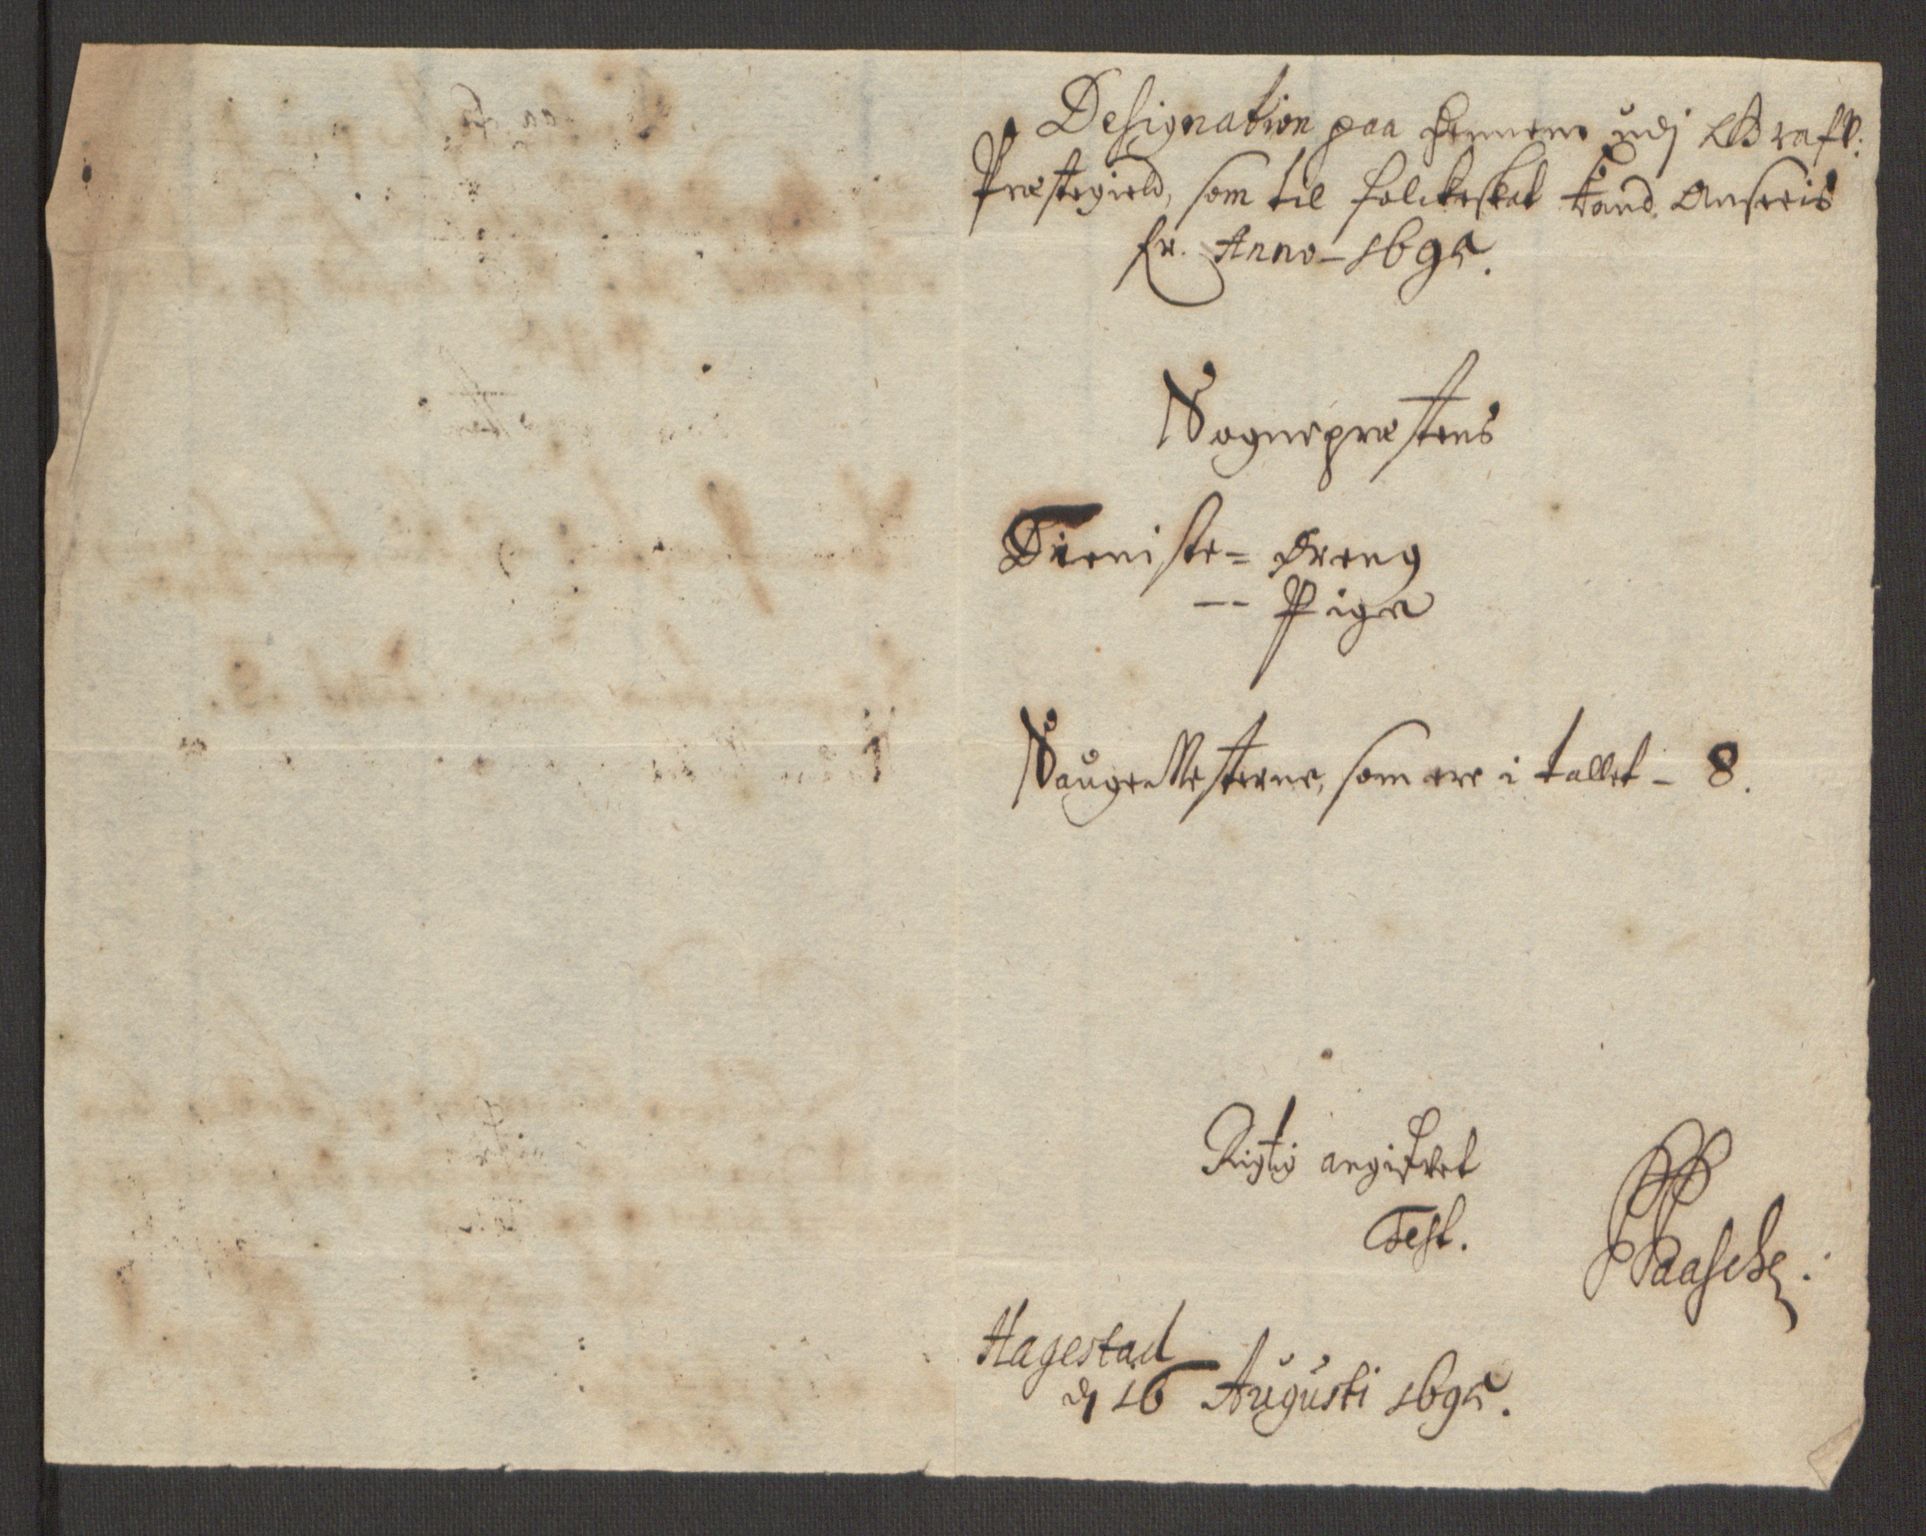 Designation paa dennem udj
Præstegield, som til folckeskat kand Anseeis
fr. Anno - 1695.
Sognepræstens
Tieniste = Dreng
-- Pige
Saugemesterne, som ere i tallet - 8.
Rigtig angifvet
Test.
PPaasche.
Hagestad
d 16 Augusti 1695.